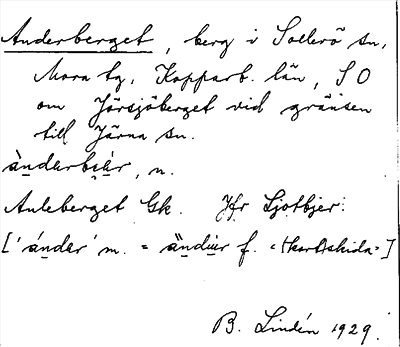 Anderberget, berg i Sollerö sn,
Mora tg, Kopparb. län, SO
om Jörsjöberget vid gränsen
till Järna sn.
àndarbẹ̀ạr, n.
Anleberget Gk. Jfr Ljotbjer:
['ándar' m. = ändur f. "(kort)skida"]
B. Lindén 1929.